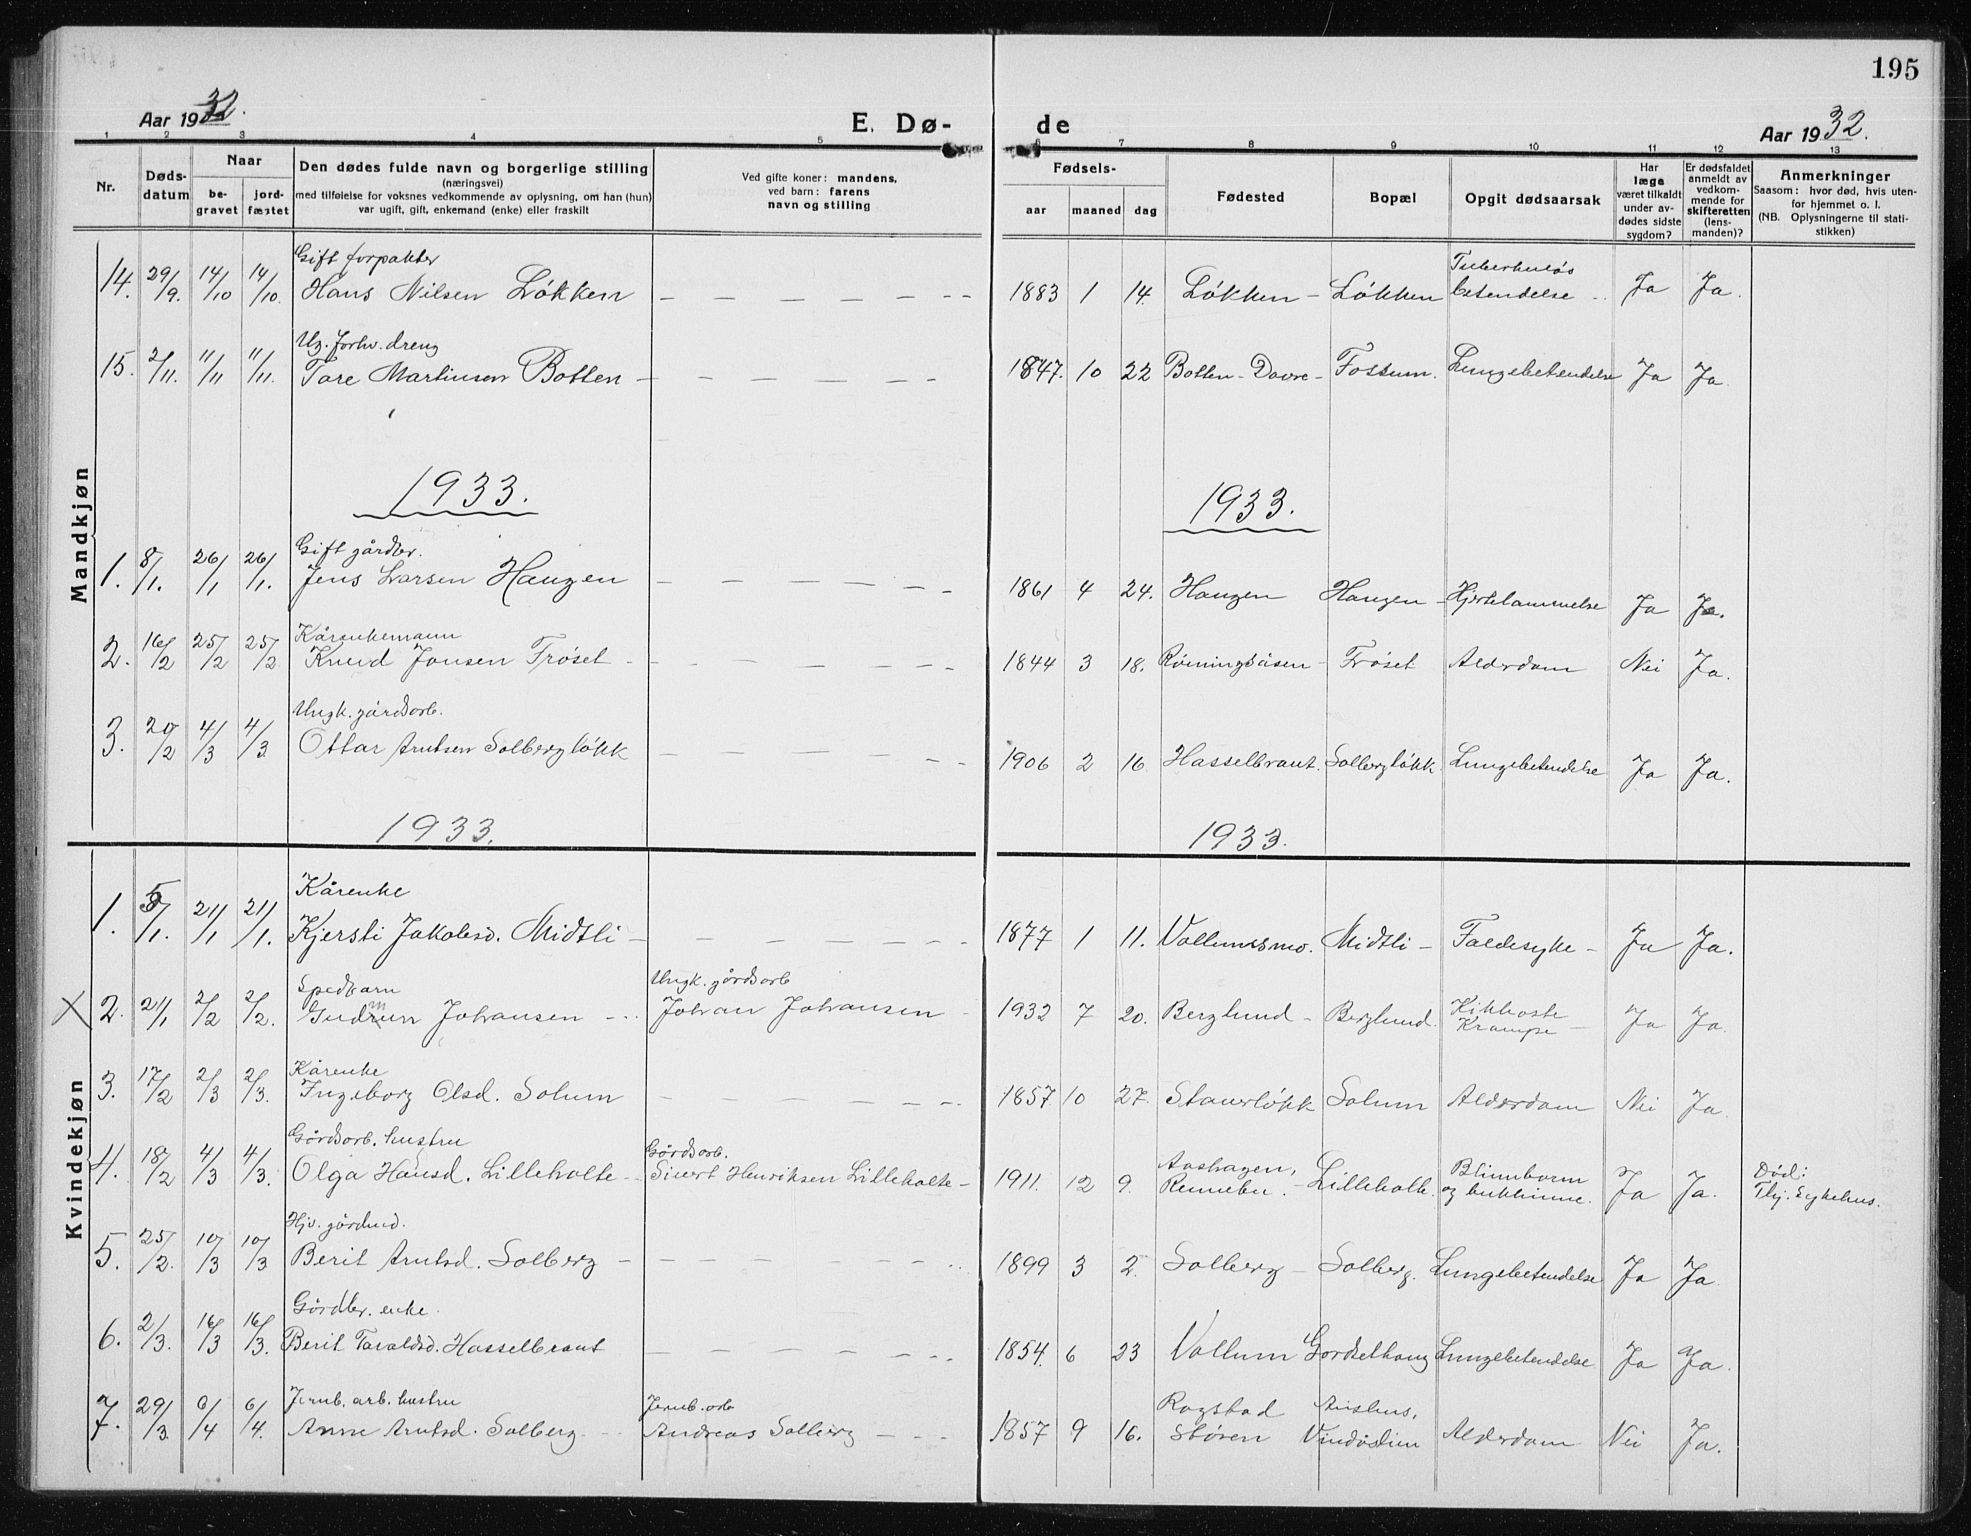 195
Aar 1932.
E. Dø-
de
Aar 1932.
1 2 3 4 5 6 7 8 9 10 11 12 13
Nr.
Døds-
datum
Naar
be-
gravet
jord-
fæstet
Den dødes fulde navn og borgerlige stilling
(næringsvei)
med tilføielse for voksnes vedkommende av oplysning, om han (hun)
var ugift, gift, enkemand (enke) eller fraskilt
Ved gifte koner: mandens,
ved barn: farens
navn og stilling
Fødsels-
aar maaned dag
Fødested
Bopæl
Opgit dødsaarsak
Har
læge
været tilkaldt
under av-
dødes sidste
sygdom?
Er dødsfaldet
anmeldt av
vedkom-
mende for
skifteretten
(lens-
manden)?
Anmerkninger
Saasom: hvor død, hvis uten-
for hjemmet o. l.
(NB. Oplysningerne til stati-
stikken)
Mandkjøn
Gift forpakter Tuberkuløs
14. 29/9. 14/10 14/10. Hans Nilsen Løkken — — — — — - - 1883 1 14. Løkken – Løkken betendelse - - Ja Ja.
Ug. forhv. dreng
15. 2/11. 11/11 11/11. Tore Martinsen Botten — — — — — - 1847. 10 22 Botten - Dovre - Fossum. Lungebetendelse Ja Ja.
1933. 1933.
Gift gårdbr.
1. 8/1. 26/1 26/1. Jens Larsen Haugen — — — — — - - 1861 4 24. Haugen Haugen - Hjertelammelse Ja Ja.
Kårenkemann
2. 16/2 25/2 25/2. Knud Jonsen Trøset - — — — — — - - 1844 3 18. Røiningsåsen - Trøset Alderdom Nei Ja.
Ungk. gårdsarb.
3. 20/2 4/3 4/3. Ottar Arntsen Solbergløkk — — — — - - 1906 2 16. Hasselbraut. Solbergløkk. Lungebetendelse Ja Ja.
1933. 1933.
Kvindekjøn
Kårenke
1. 5/1. 21/1 21/1. Kjersti Jakobsd. Midtli — — — — — - - 1877 1 11. Vollumsmo. Midtli — Faldesyke – Ja Ja.
Spedbarn Ungk. gårdsarb Kikhoste
X 2. 21/1 2/2 2/2. Gudrun Johansen - - - Johan Johansen - 1932 7 20. Berglund - Berglund. Krampe — Ja Ja.
Kårenke
3. 17/2 2/3 2/3. Ingeborg Olsd. Solum — — — — — - - 1857. 10 27. Stauerløkk Solum Alderdom Nei Ja.
Gårdsarb. hustru Gårdsarb. Aashagen, Blinnborm Död:
4. 18/2 4/3 4/3. Olga Hansd. Lilleholte - - Sivert Henriksen Lilleholte – 1911. 12 9. Rennebu. - Lilleholte. og bukhinne. Ja Ja. Thj. Sykehus.
Hjv. gårdmd.
5. 25/2. 10/3 10/3 Berit Arntsd. Solberg — — — — — - - - 1899 3 2. Solberg — Solberg. Lungebetendelse Ja Ja.
Gårdbr. enke.
6. 2/3. 16/3 16/3. Berit Taraldsd. Hasselbraut — — — — — - - 1854. 6 23 Vollum Gordsethaug Lungebetendelse Ja Ja.
Jernb. arb. hustru Jernb. arb Rogstad Aushus,
7. 29/3. 6/4 6/4. Anne Arntsd. Solberg - - Andreas Solberg — — - 1857 9 16. Støren Vindøslien Alderdom Nei Ja.